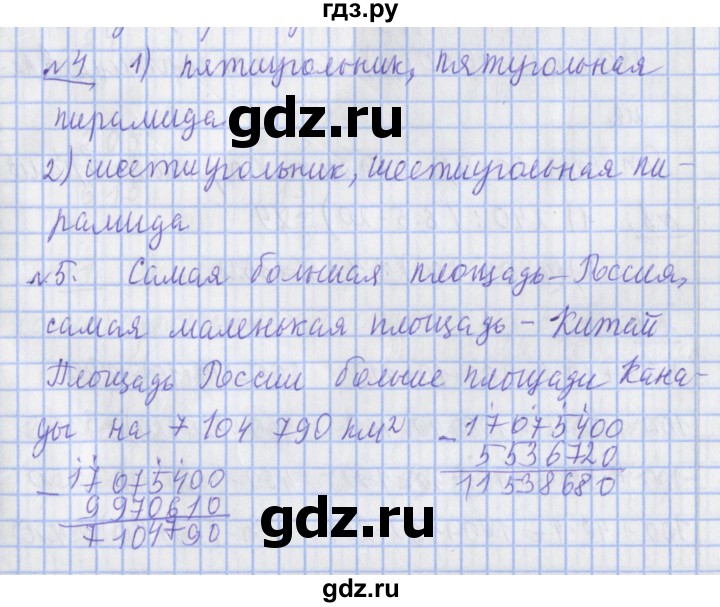 гдз.ру
№4 1) пятиугольник, пятугольная
пирамида
gdz.ru
2) шестиугольник, шестиугольная пи-
рамида
№5. Самая большая площадь – Россия,
самая маленькая площадь – Китай
Площадь России больше площади Кана-
ды на 7 104 790 км²
17075400
- 5536720
11538680
- 17075400
9970610
7104790
gdz.ru
gdz.ru